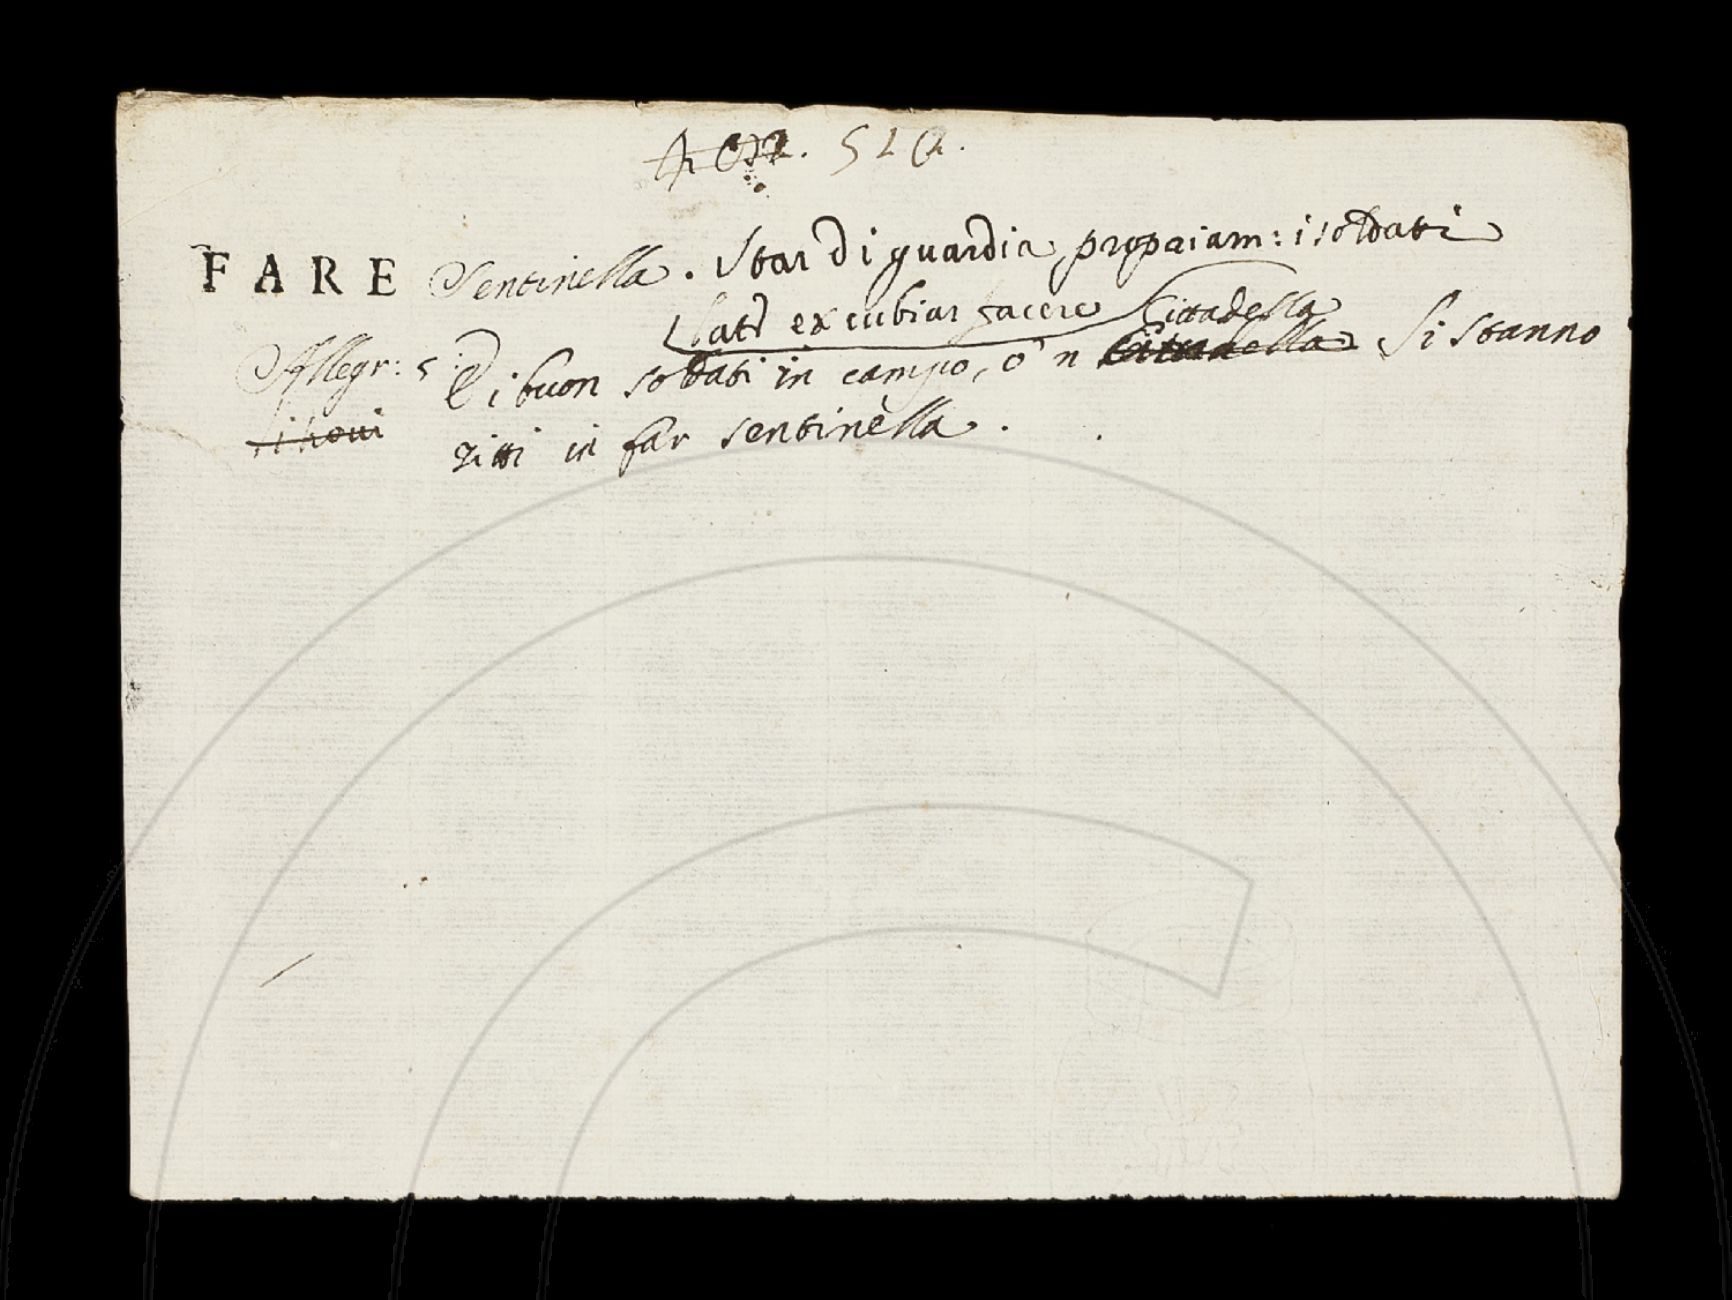 512.
FARE Sentinella. Star di guardia, propriam: i soldati
Lat: excubias facere
Cittadella
Allegr: 5: E i buon soldati in campo, o'n Cittadella Si stanno
ritti in far sentinella.